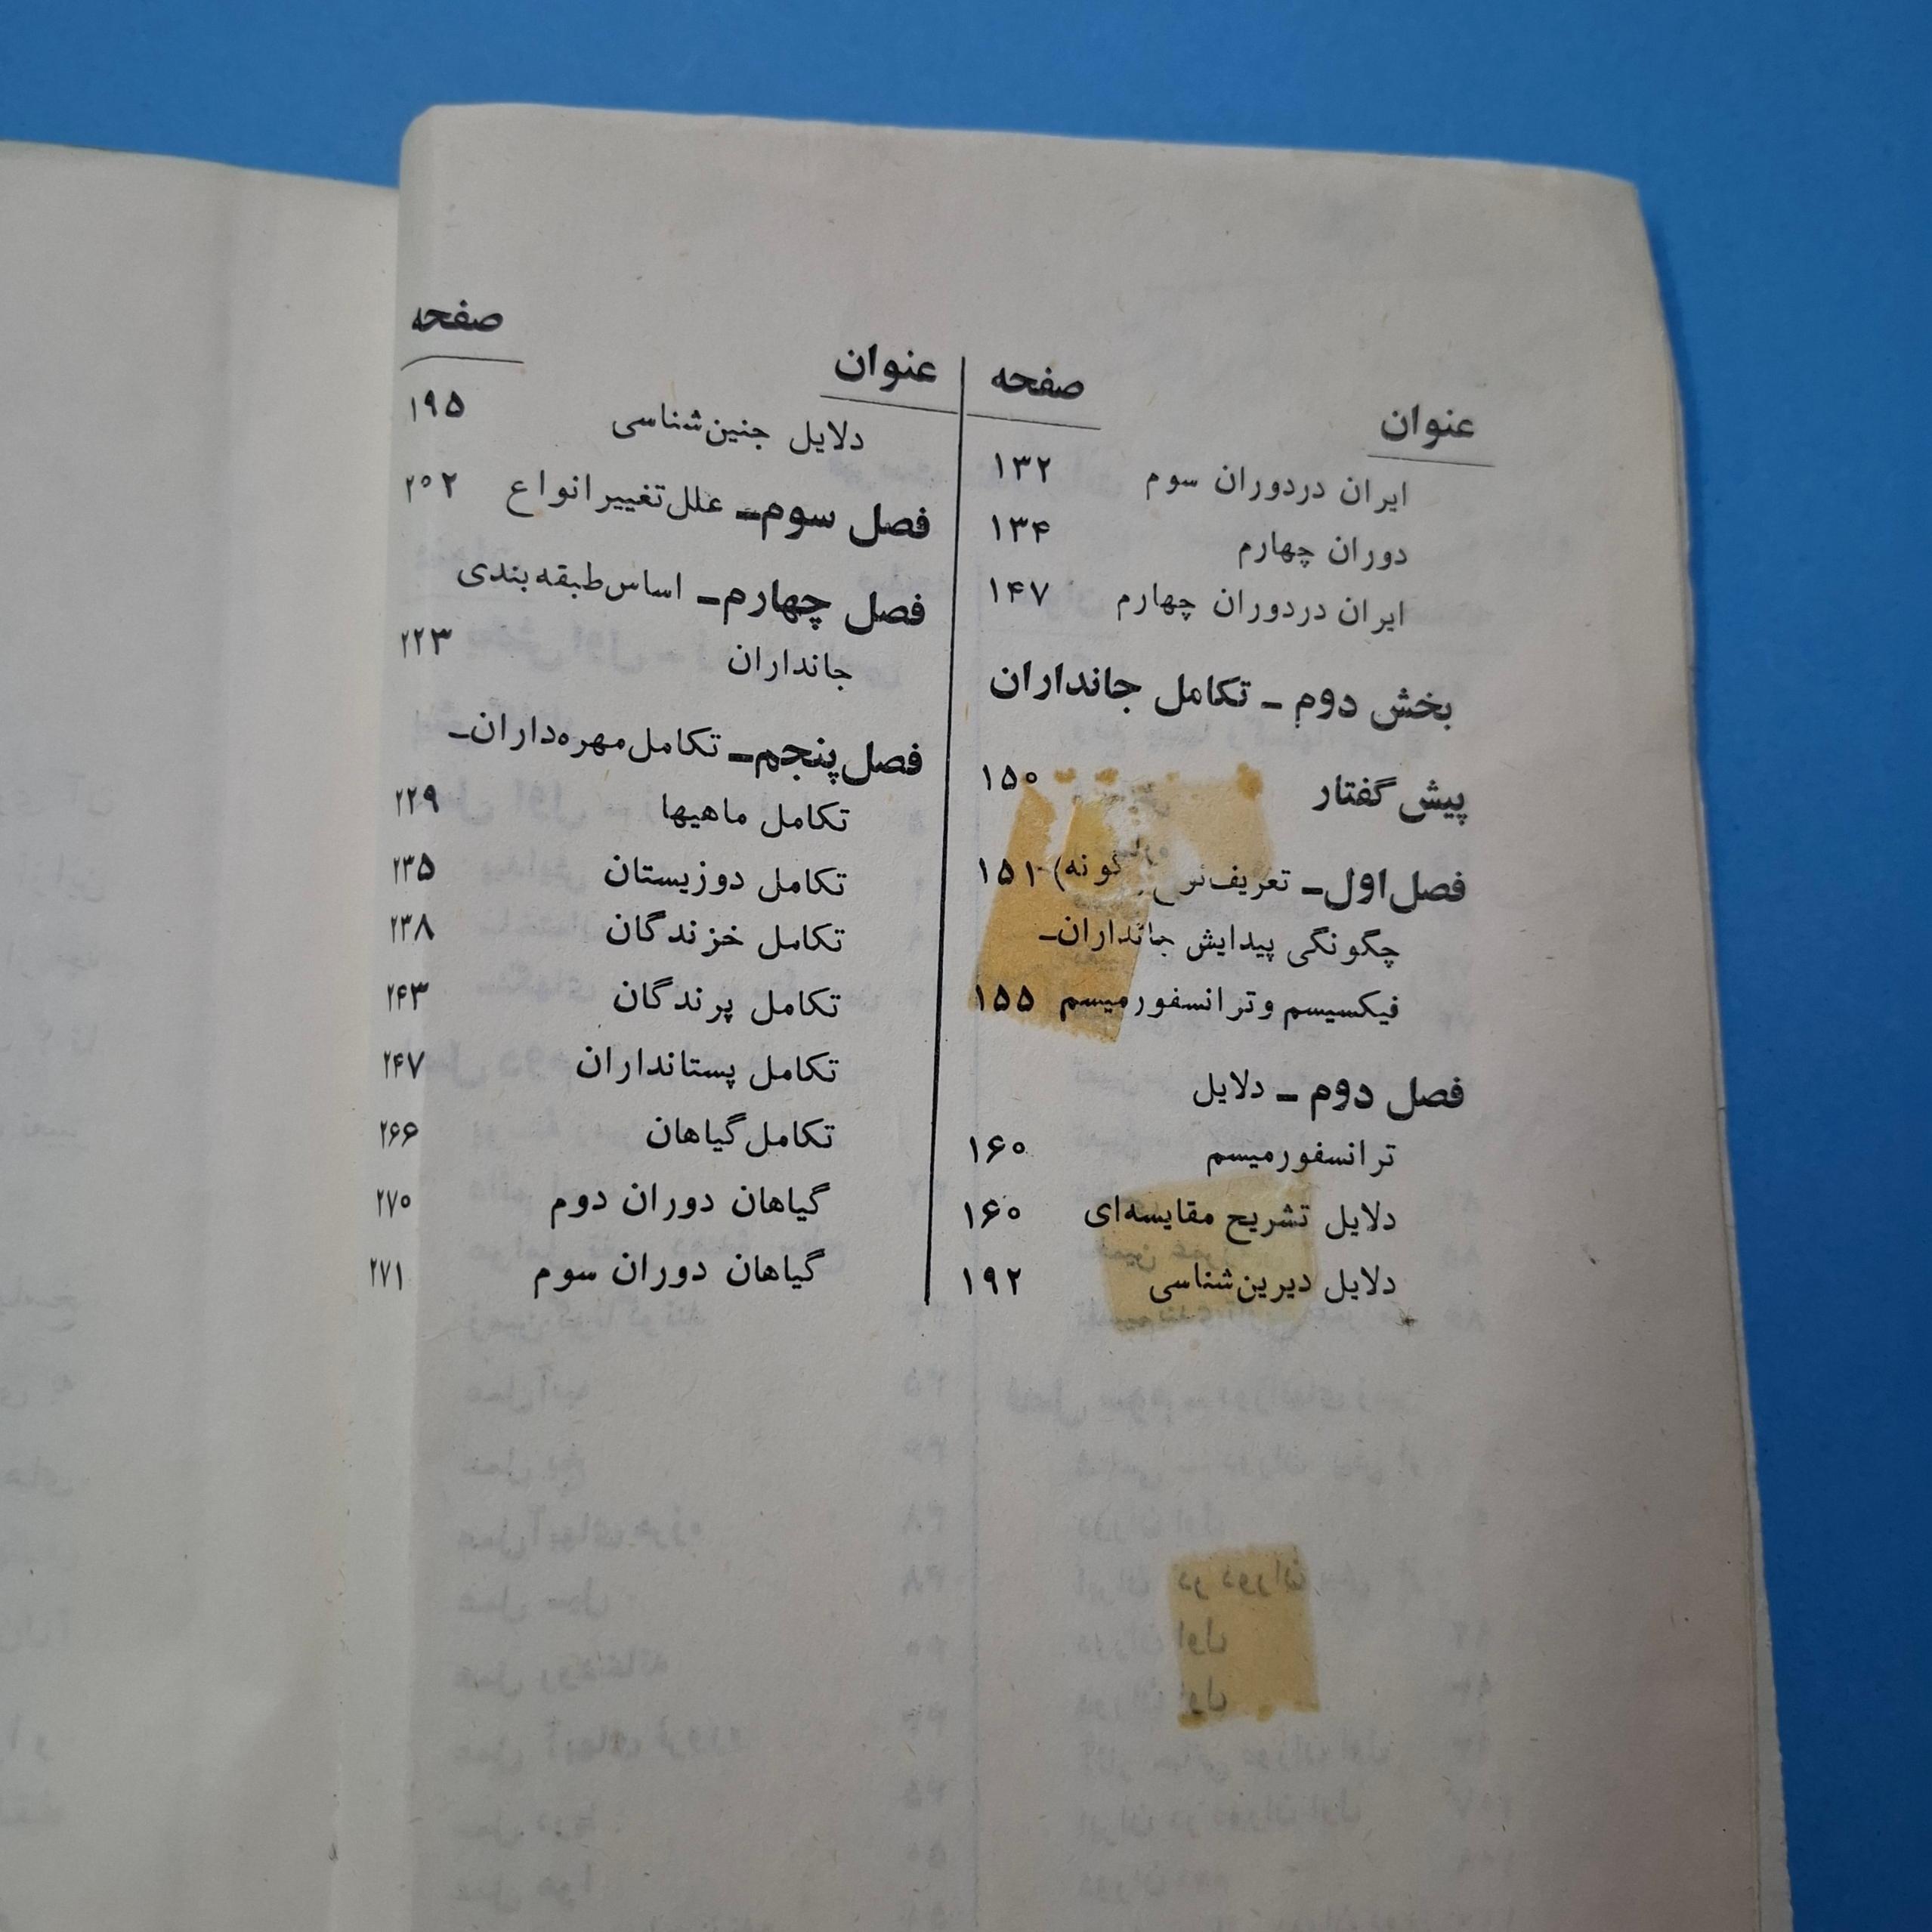 عنوان صفحه
ایران دردوران سوم ۱۳۲
دوران چهارم ۱۳۴
ایران دردوران چهارم ۱۴۷
بخش دوم ـ تکامل جانداران
پیش گفتار ۱۵۰
فصل اول ـ تعریف گونه) ۱۵۱
چگونگی پیدایش جانداران ـ
فیکسیسم وترانسفورمیسم ۱۵۵
فصل دوم ـ دلایل
ترانسفورمیسم ۱۶۰
دلایل تشریح مقایسه‌ای ۱۶۰
دلایل دیرین‌شناسی ۱۹۲
عنوان صفحه
دلایل جنین‌شناسی ۱۹۵
فصل سوم ـ علل تغییر انواع ۲۰۲
فصل چهارم ـ اساس طبقه بندی
جانداران ۲۲۳
فصل پنجم ـ تکامل مهره‌داران ـ
تکامل ماهیها ۲۲۹
تکامل دوزیستان ۲۳۵
تکامل خزندگان ۲۳۸
تکامل پرندگان ۲۴۳
تکامل پستانداران ۲۴۷
تکامل گیاهان ۲۶۶
گیاهان دوران دوم ۲۷۰
گیاهان دوران سوم ۲۷۱